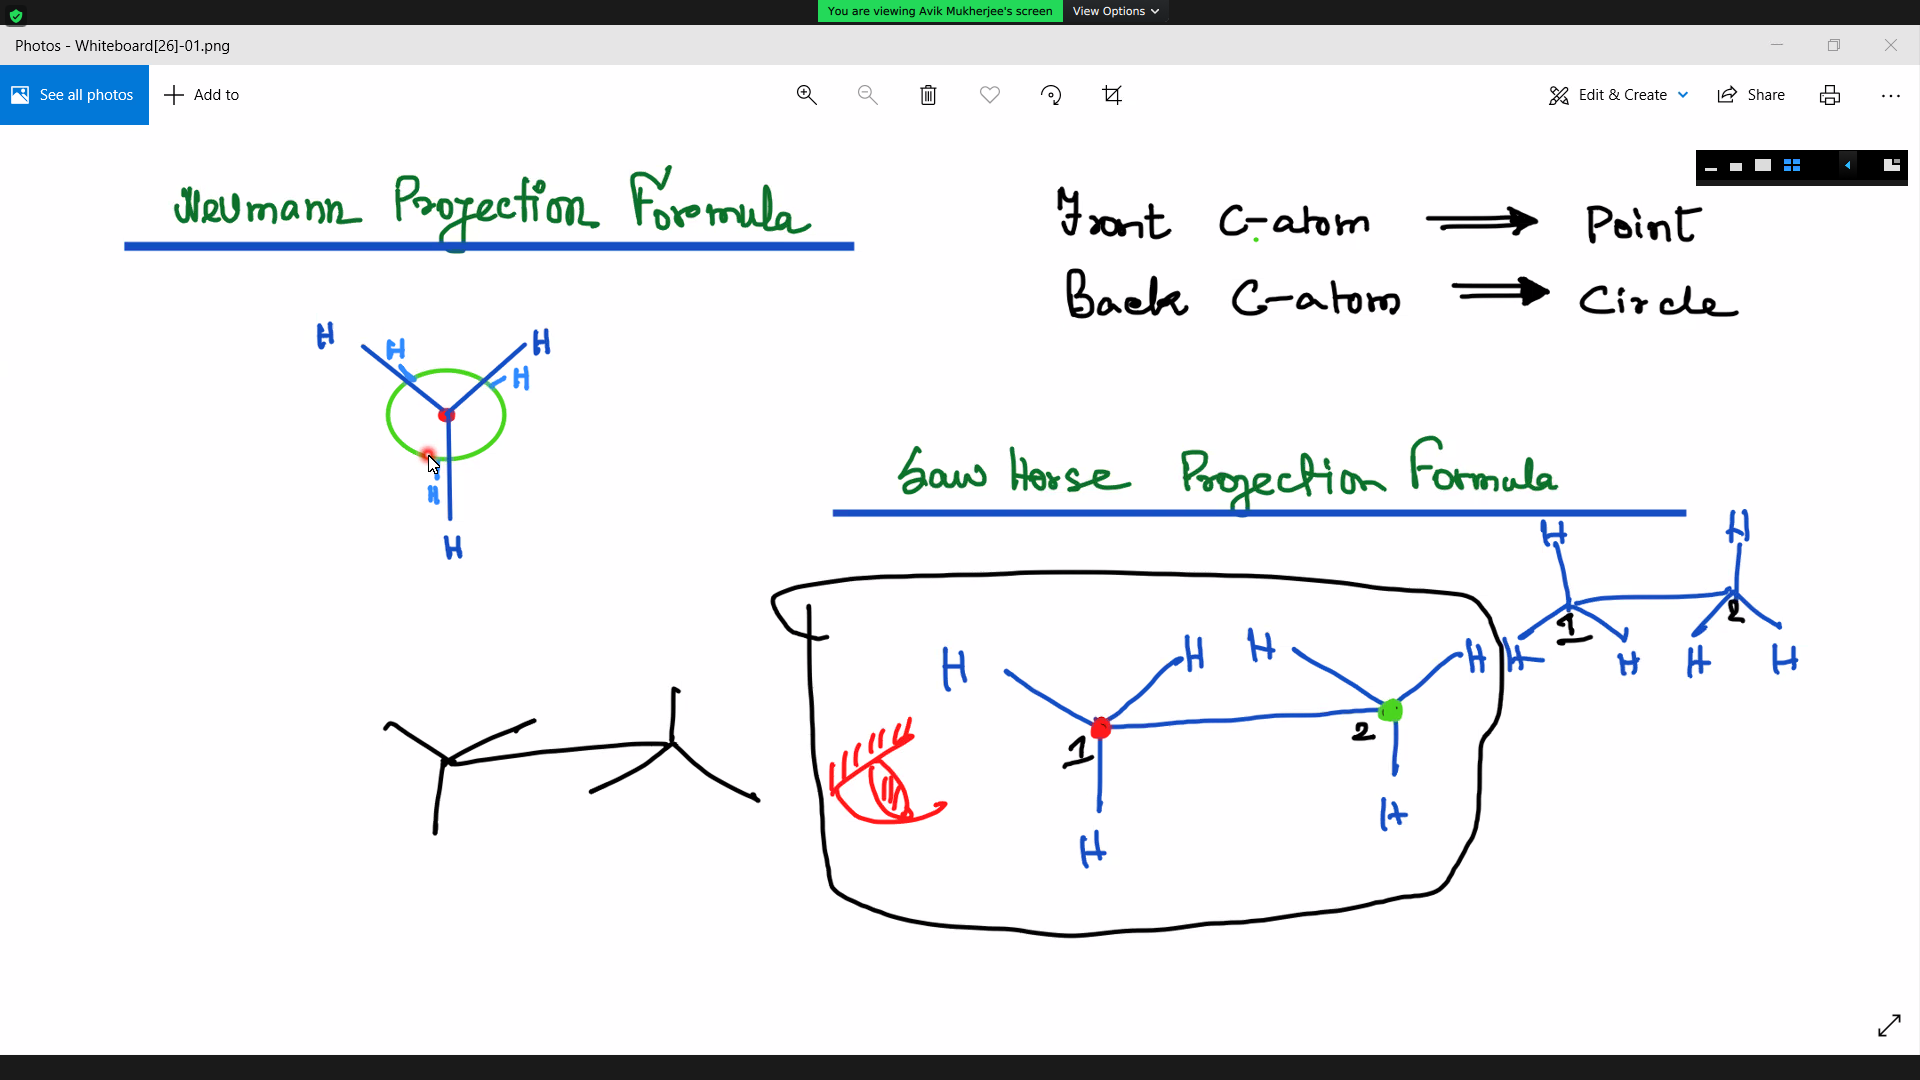 You are viewing Avik Mukherjee's screen View Options
Photos - Whiteboard[26]-01.png
See all photos Add to Edit & Create Share
Neumann Projection Formula
Front C-atom ⟹ Point
Back C-atom ⟹ Circle
H H H
H
H
H
Saw Horse Projection Formula
H H
1 2
H H H H
H H H H
1 2
H H